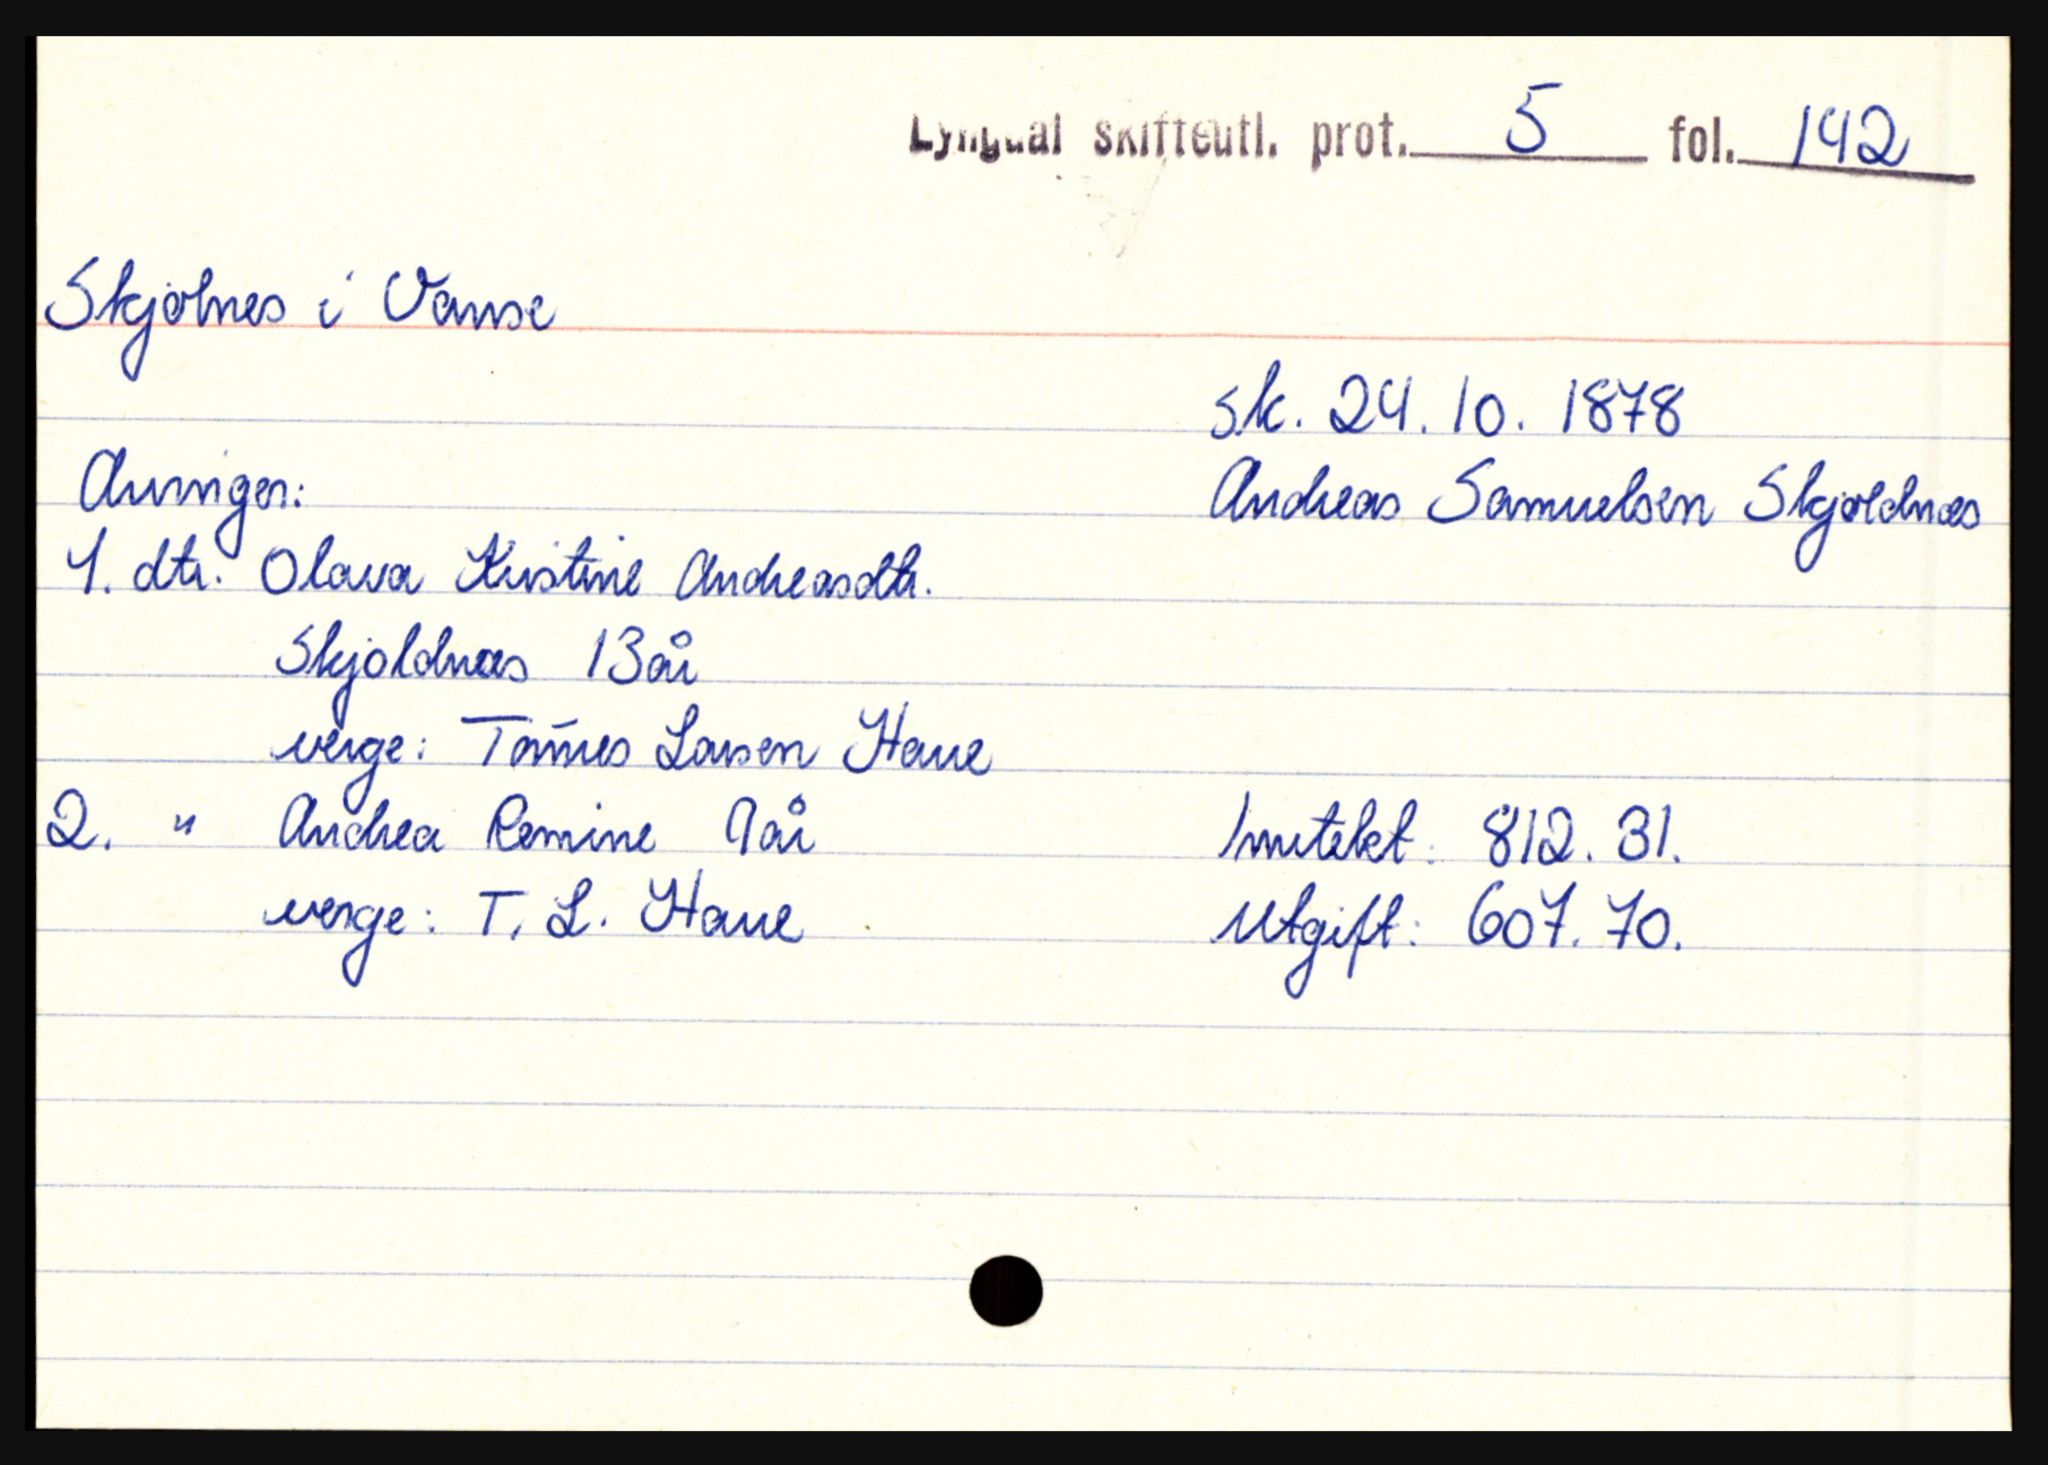 Lyngdal skifteutl. prot. 5 fol. 142
Skjølnes i Vanse
sk. 24.10.1878
Arvinger:
Andreas Samuelsen Skjøldnæs
1. dtr. Olava Kristine Andreasdtr.
Skjoldnæs 13 år
verge: Tønnes Larsen Haue
2. " Andrea Remine 9 år
Inntekt: 812.31.
verge: T. L. Haue
Utgift: 607.70.